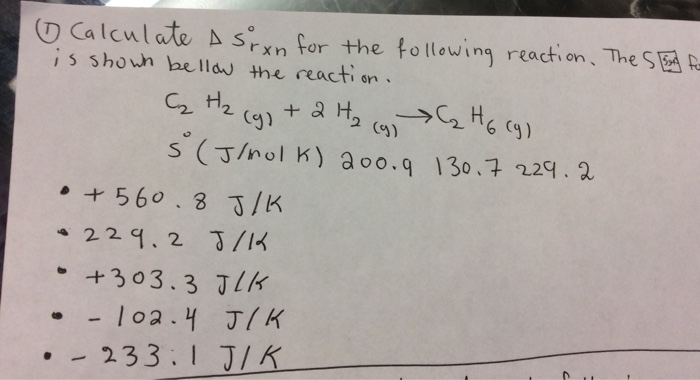 ① Calculate Δ S°rxn for the following reaction. The S
is shown bellow the reaction.
C2 H2 (g) + 2 H2 (g) → C2 H6 (g)
S° (J/mol K) 200.9 130.7 229.2
• + 560.8 J/K
• 229.2 J/K
• +303.3 J/K
• - 102.4 J/K
• - 233.1 J/K